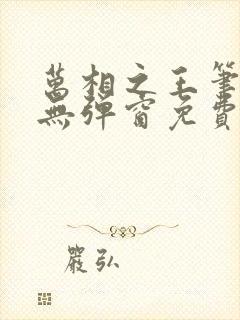 萬相之王筆
無彈窗免費
嚴弘